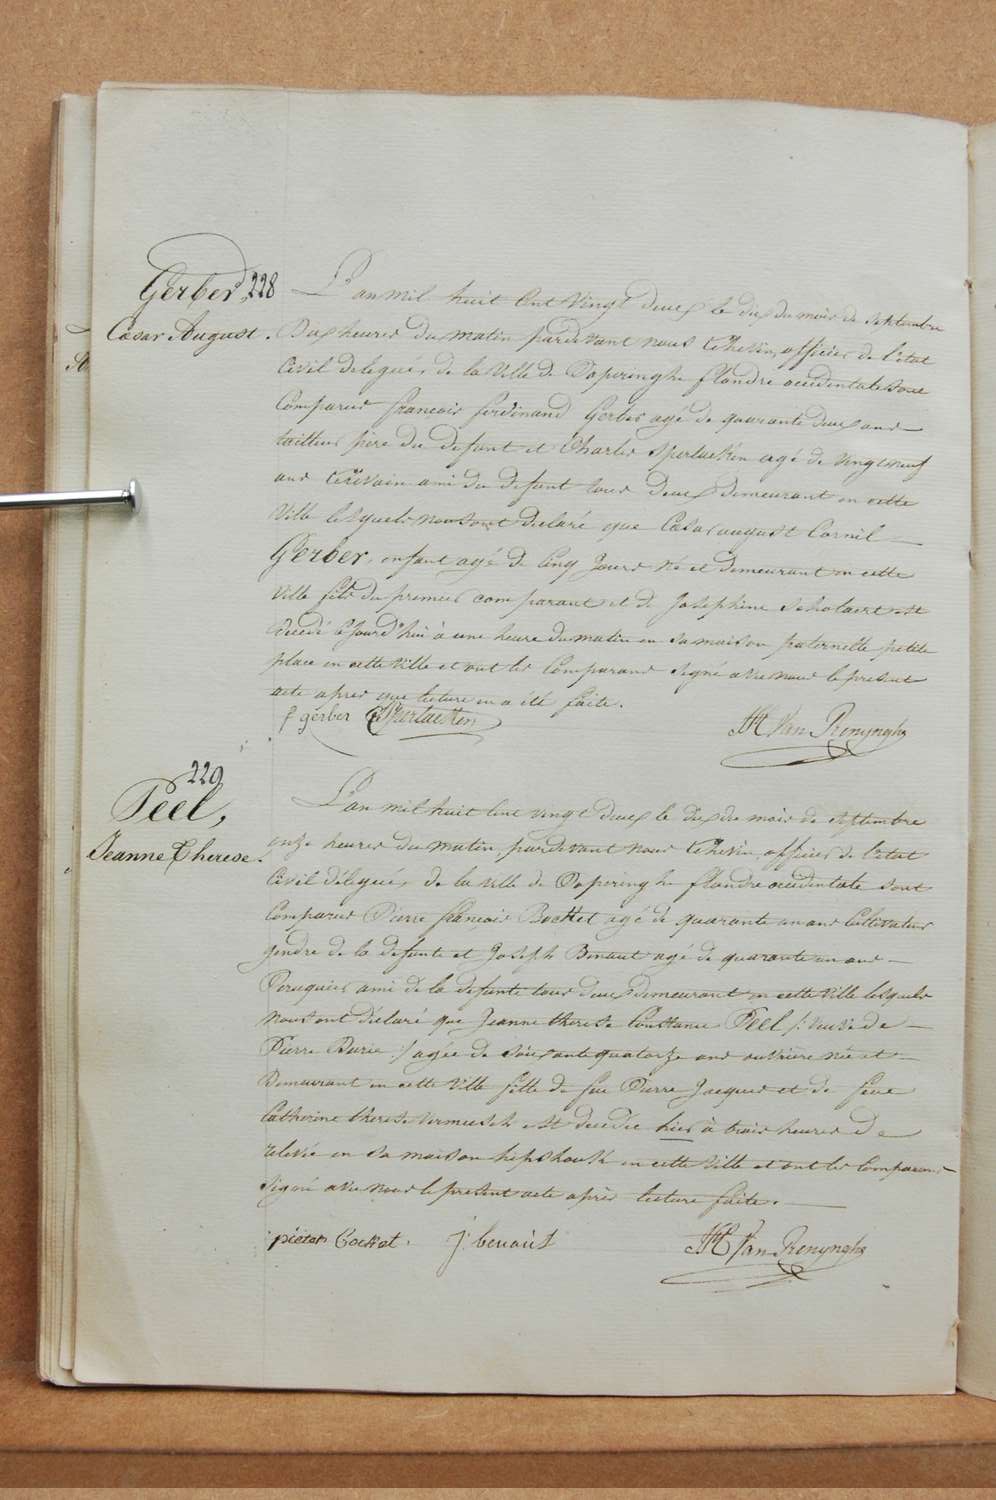 Gerber, 228
Cesar August.
L'an mil huit Cent Vingt deux le dix du mois de septembre
Dix heures du matin pardevant nous Echevin, officier de l'état
Civil delegué, de la Ville de Poperinghe flandre occidentale sont
Comparus francois ferdinand Gerber agé de quarante deux ans
tailleur père du defunt et Charles Sperlaeken agé de Vingt neuf
ans Ecrivain ami du defunt tous deux demeurant en cette
Ville lesquels nous ont declaré que Cesar august Cornil
Gerber, enfant agé de Cinq Jours né et demeurant en cette
Ville fils du premier comparant et de Josephine Scholaert est
decedé cejourd'hui à une heure du matin en sa maison paternelle petite
place en cette Ville et ont les Comparans signé avec nous le present
acte apres que lecture en a été faite.
f gerber C Sperlaeken
VanRenynghe
229
Peel,
Jeanne Therese.
L'an mil huit Cent vingt deux le dix du mois de septembre
onze heures du matin, pardevant nous Echevin, officier de l'état
Civil délegué, de la ville de Poperinghe flandre occidentale sont
Comparus Pierre francois Bockket agé de quarante un ans Cultivateur
gendre de la defunte et Joseph Benaut agé de quarante un ans
Peruquier ami de la defunte tous deux demeurant en cette Ville lesquels
nous ont declaré que Jeanne therese Constance Peel /: veuve de
Pierre Burie :/ agée de soixante quatorze ans ouvrière née et
Demeurant en cette Ville fille de feu Pierre Jacques et de feue
Catherine therese Vermeesch est decedée hier à trois heures de
relevée en sa maison hipshouk en cette Ville et ont les Comparans
signé avec nous le present acte après lecture faite.
pieter Cocket. j. benaut
VanRenynghe